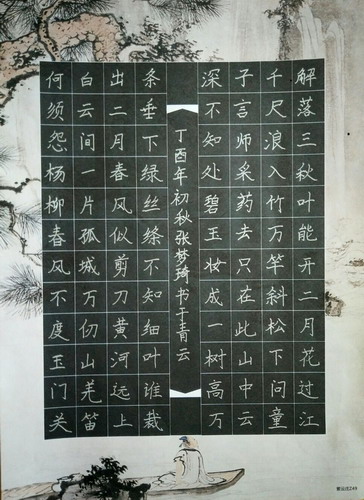 解落三秋叶能开二月花过江
千尺浪入竹万竿斜松下问童
子言师采药去只在此山中云
深不知处碧玉妆成一树高万
丁酉年初秋张梦琦书于青云
条垂下绿丝绦不知细叶谁裁
出二月春风似剪刀黄河远上
白云间一片孤城万仞山羌笛
何须怨杨柳春风不度玉门关